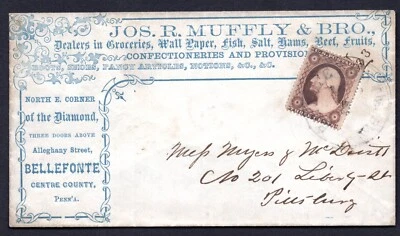 JOS. R. MUFFLY & BRO.,
Dealers in Groceries, Wall Paper, Fish, Salt, Hams, Beef, Fruits,
CONFECTIONERIES AND PROVISIONS
BOOTS, SHOES, FANCY ARTICLES, NOTIONS, &C., &C.
NORTH E. CORNER
of the Diamond,
THREE DOORS ABOVE
Alleghany Street,
BELLEFONTE
CENTRE COUNTY,
PENN'A.
Mess Myers & McDevitt
No 201 Liberty St
Pittsburg